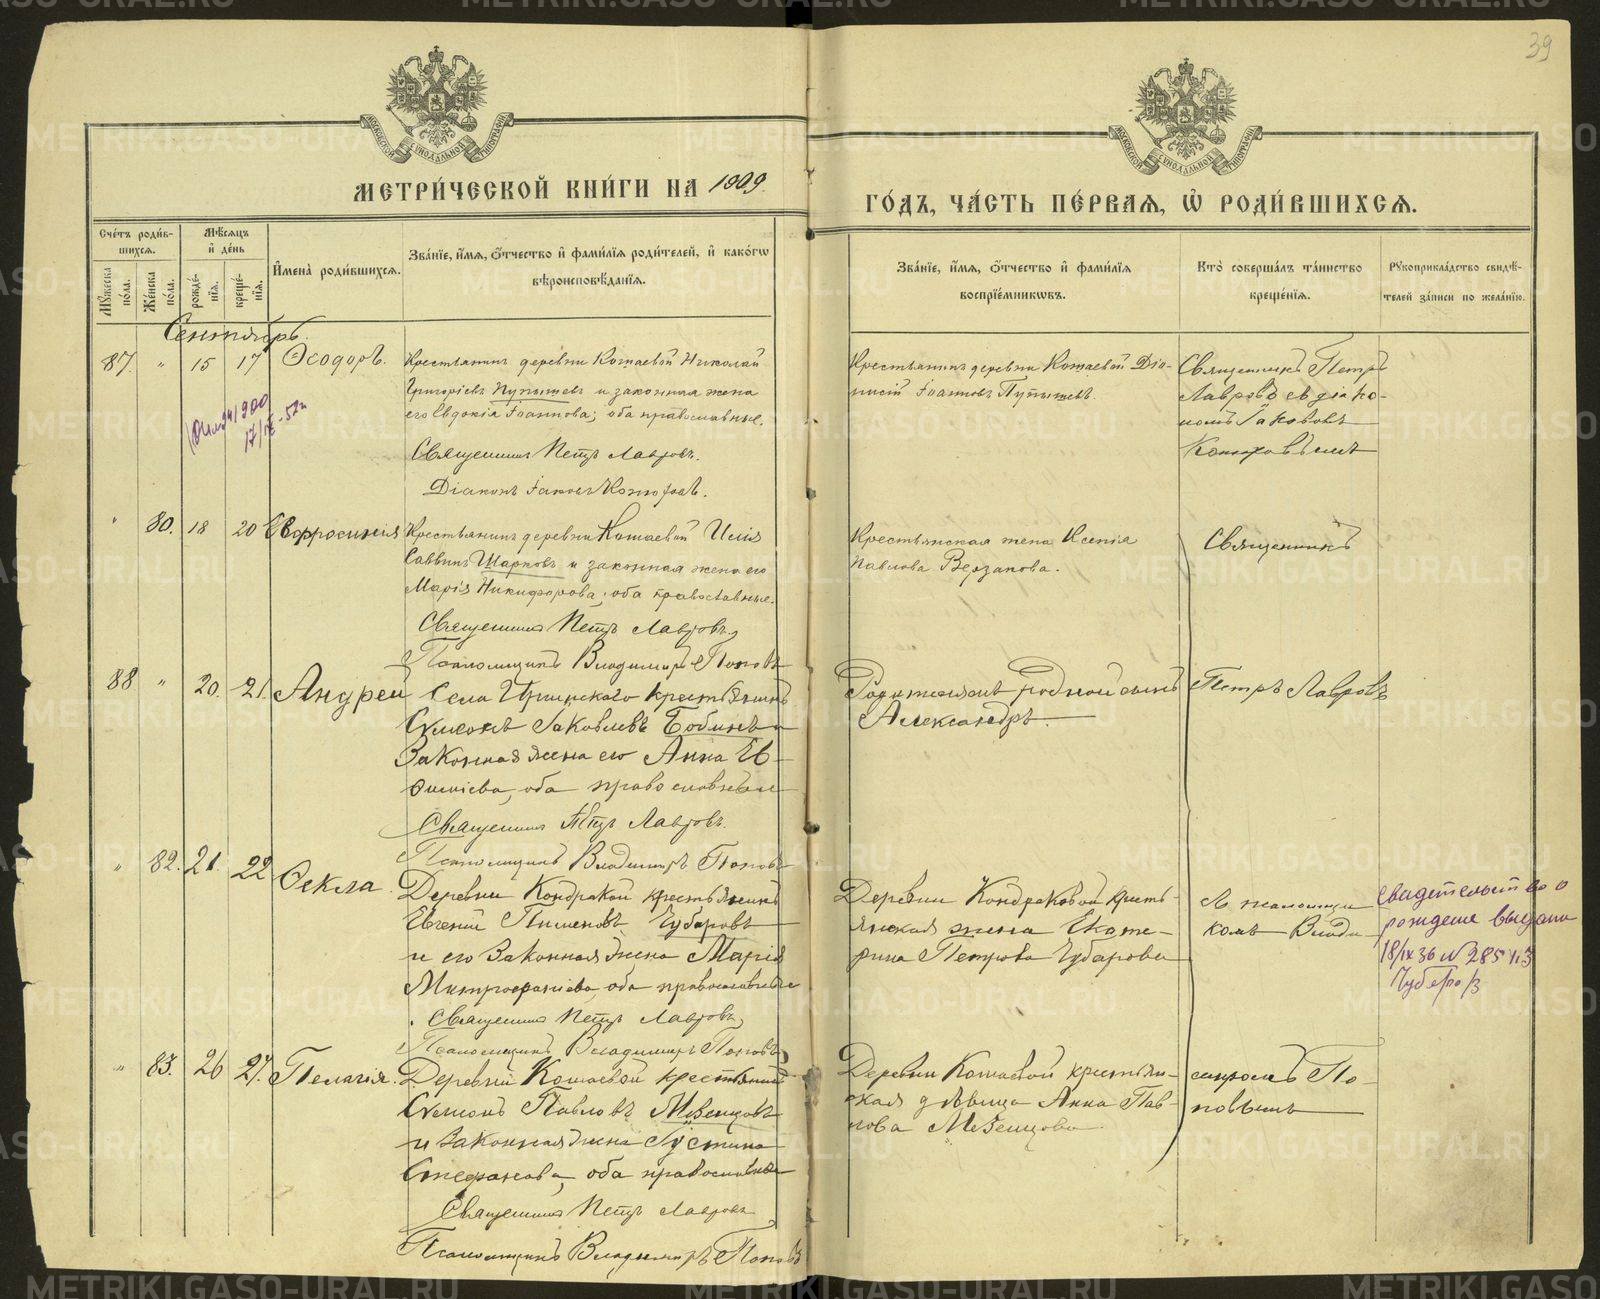 39
МОСКОВСКОЙ СѴНОДАЛЬНОЙ ТИПОГРАФІИ
МОСКОВСКОЙ СѴНОДАЛЬНОЙ ТИПОГРАФІИ
МЕТРИ́ЧЕСКОЙ КНИ́ГИ НА 1909
ГО́ДЪ, ЧА́СТЬ ПЕ́РВАЯ, Ѡ҆ РОДИ́ВШИХСЯ.
Сче́тъ роди́в-
шихся.
Мꙋ́жеска по́ла.
Же́нска по́ла.
Мѣ́сяцъ
и҆ де́нь
рожде́-
нїя.
креще́-
нїя.
И҆мена̀ роди́вшихся.
Зва́нїе, и҆́мя, ѻ҆́тчество и҆ фами́лїя роди́телей, и҆ како́гѡ
вѣроисповѣ́данїя.
Зва́нїе, и҆́мя, ѻ҆́тчество и҆ фами́лїя
воспрїе́мникѡвъ.
Кто̀ соверша́лъ та́инство
креще́нїя.
Рꙋкоприкла́дство свидѣ́-
телей за́писи по жела́нїю.
Сентябрь.
87. " 15 17 Ѳеодоръ.
Крестьянинъ деревни Кошаевой Николай
Григоріевъ Пупышевъ и законная жена
его Евдокія Іоаннова; оба православные.
Священникъ Петръ Лавровъ.
Діаконъ Іаковъ
17/IX-52г
Крестьянинъ деревни Кошаевой Діо-
нисій Іоанновъ Пупышевъ.
Священникъ Петръ
Лавровъ съ діако-
номъ Іаковомъ
" 80. 18 20 Евфросинія
Крестьянинъ деревни Кошаевой Илія
Саввинъ Шарповъ и законная жена его
Марія Никифорова, оба православные.
Священникъ Петръ Лавровъ
Псаломщикъ Владимиръ Поповъ
Крестьянская жена Ксенія
Павлова Верзакова.
Священникъ
88 " 20. 21. Андрей
Села Иргинскаго крестьянинъ
Симеонъ Іаковлевъ Бобинъ и
Законная жена его Анна Ев-
ѳиміева, оба православные
Священникъ Петръ Лавровъ.
Псаломщикъ Владимиръ Поповъ
Родителямъ родной сынъ
Александръ.
Петръ Лавровъ
" 82. 21. 22 Ѳекла.
Деревни крестьянинъ
Евгеній Пименовъ Губаровъ
и его Законная жена Марія
Митрофаніева, оба православные
Священникъ Петръ Лавровъ
Псаломщикъ Владимиръ Поповъ
Деревни Кондраковой кресть-
янская жена Екате-
рина Петрова Губарова
псаломщи
комъ Влади
Свидетельство о
рождение выдано
18/IX 36 N 285413
" 83. 26 27. Пелагія.
Деревни Кошаевой крестьянинъ
Симеонъ Павловъ Мезенцовъ
и Законная жена Іустина
Стефанова, оба православные
Священникъ Петръ Лавровъ
Псаломщикъ Владимиръ Поповъ
Деревни Кошаевой крестьян-
ская дѣвица Анна Пав-
лова Мезенцова
міромъ По-
повымъ
METRIKI.GASO-URAL.RU